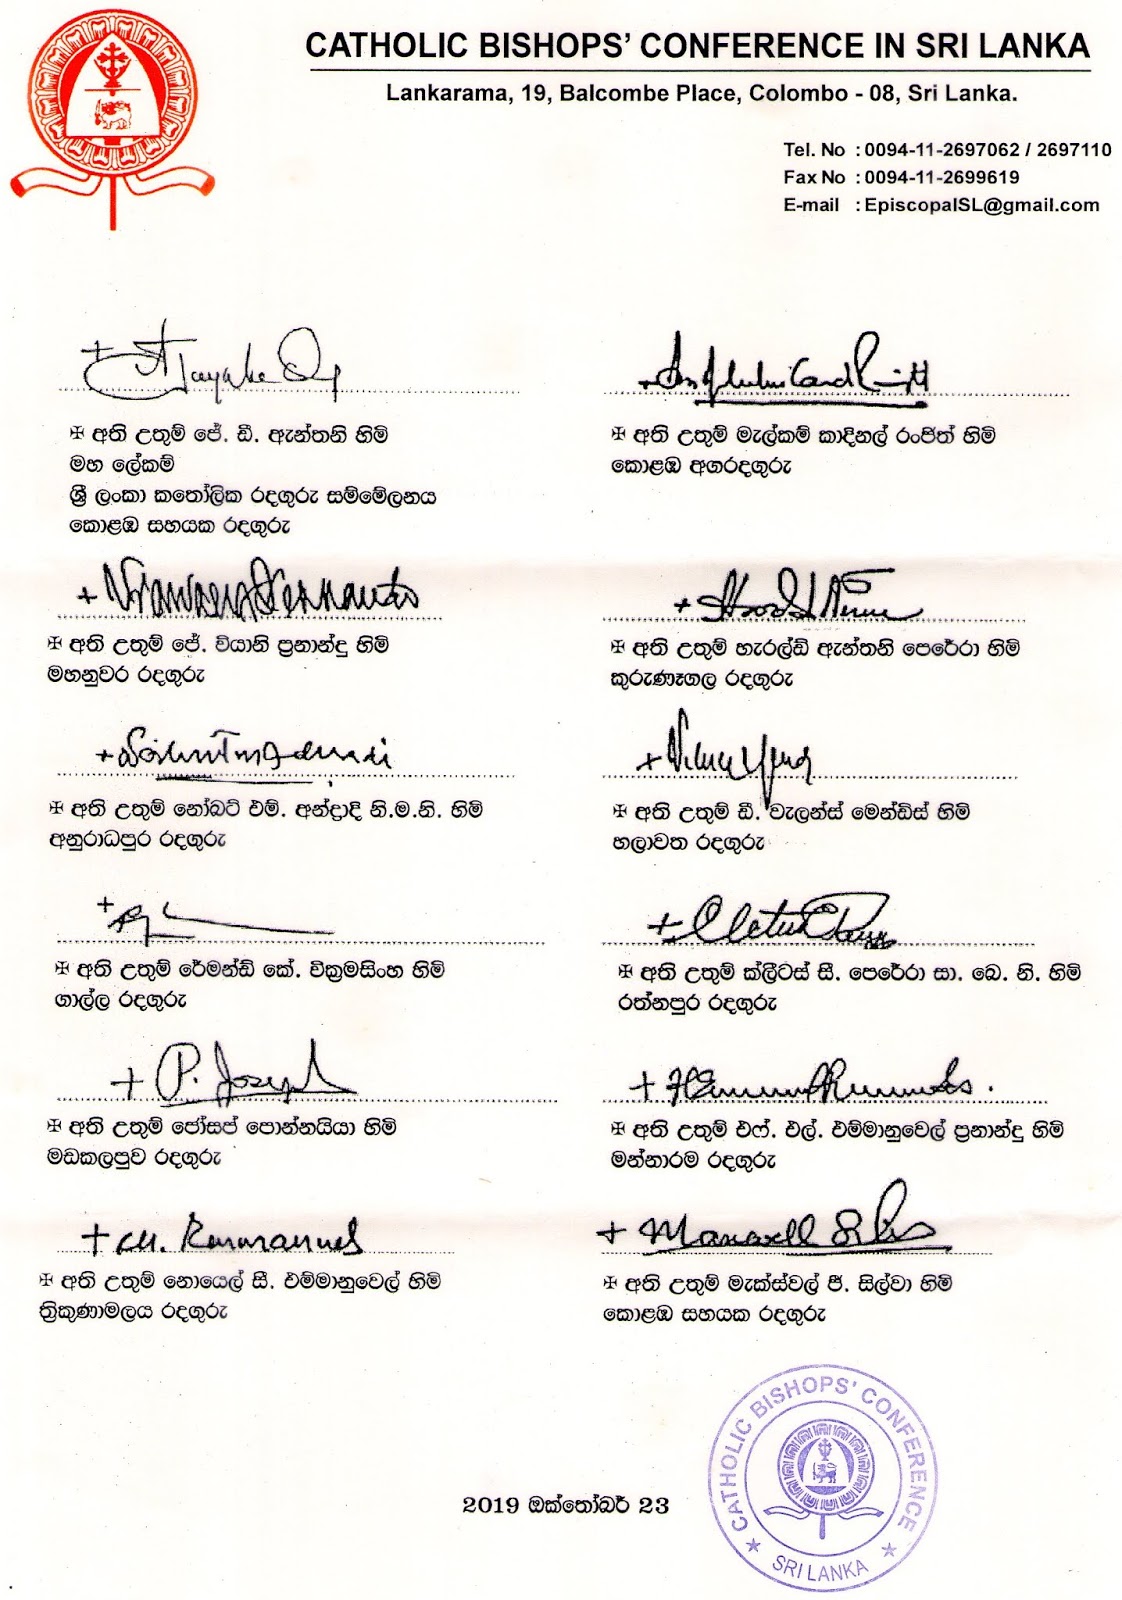 CATHOLIC BISHOPS' CONFERENCE IN SRI LANKA
Lankarama, 19, Balcombe Place, Colombo - 08, Sri Lanka.
Tel. No : 0094-11-2697062 / 2697110
Fax No : 0094-11-2699619
E-mail : EpiscopalSL@gmail.com
✠ අති උතුම් ජේ. ඩී. ඇන්තනි හිමි
මහ ලේකම්
ශ්‍රී ලංකා කතෝලික රදගුරු සම්මේලනය
කොළඹ සහයක රදගුරු
✠ අති උතුම් මැල්කම් කාදිනල් රංජිත් හිමි
කොළඹ අගරදගුරු
✠ අති උතුම් ජේ. වියානි ප්‍රනාන්දු හිමි
මහනුවර රදගුරු
✠ අති උතුම් හැරල්ඩ් ඇන්තනි පෙරේරා හිමි
කුරුණෑගල රදගුරු
✠ අති උතුම් නෝබට් එම්. අන්ද්‍රාදි නි.ම.නි. හිමි
අනුරාධපුර රදගුරු
✠ අති උතුම් ඩී. වැලන්ස් මෙන්ඩිස් හිමි
හලාවත රදගුරු
✠ අති උතුම් රේමන්ඩ් කේ. වික්‍රමසිංහ හිමි
ගාල්ල රදගුරු
+ Cletus C Perera
✠ අති උතුම් ක්ලීටස් සී. පෙරේරා සා. බෙ. නි. හිමි
රත්නපුර රදගුරු
+ P. Joseph
✠ අති උතුම් ජෝසප් පොන්නයියා හිමි
මඩකලපුව රදගුරු
✠ අති උතුම් එෆ්. එල්. එම්මානුවෙල් ප්‍රනාන්දු හිමි
මන්නාරම රදගුරු
✠ අති උතුම් නොයෙල් සී. එම්මානුවෙල් හිමි
ත්‍රිකුණාමලය රදගුරු
+ Maxwell Silva
✠ අති උතුම් මැක්ස්වල් ජී. සිල්වා හිමි
කොළඹ සහයක රදගුරු
2019 ඔක්තෝබර් 23
CATHOLIC BISHOPS' CONFERENCE
SRI LANKA